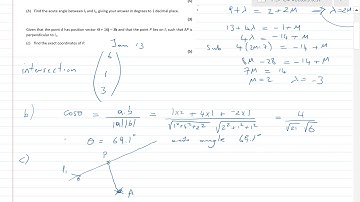 (b) Find the acute angle between l₁ and l₂, giving your answer in degrees to 1 decimal place.
(3)
Given that the point A has position vector 4i + 16j − 3k and that the point P lies on l₁ such that AP is
perpendicular to l₁,
(c) find the exact coordinates of P.
Jan 13
intersection
( 6
1
3 )
9 + λ = 2 + 2M → λ = 2M -
13 + 4λ = -1 + M
4λ = -14 + M
Sub 4(2M-7) = -14 + M
8M - 28 = -14 + M
7M = 14
M = 2 λ = -3
b) cosθ = a b / |a||b| = 1x2 + 4x1 + -2x1 / √1²+4²+2² √2²+1²+1² = 4 / √21 √6
θ = 69.1° acute angle 69.1°
c)
P
l₁
A